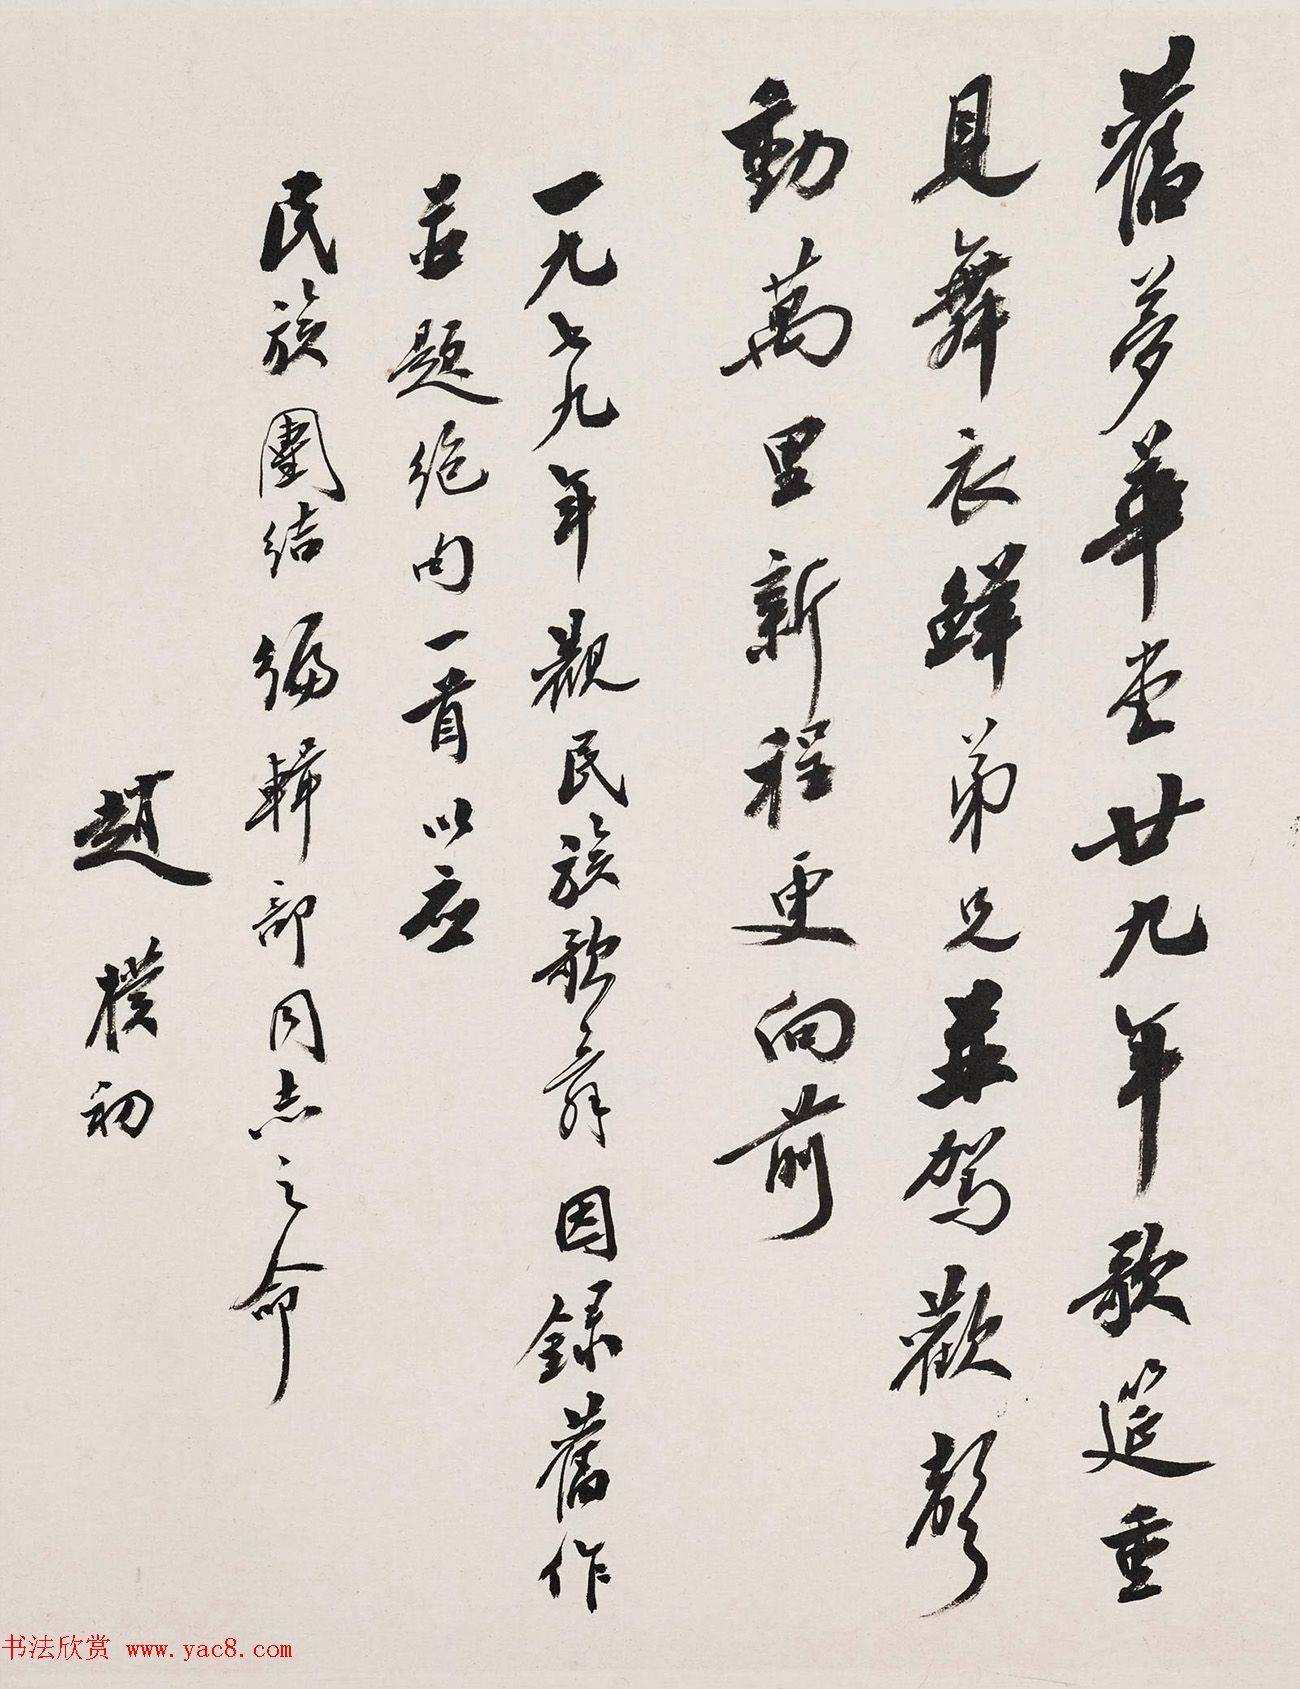 舊夢華堂廿九年歌筵重
見舞衣鮮弟兄並駕歡聲
動萬里新程更向前
一九七九年觀民族歌舞因錄舊作
並題絶句一首以应
民族團结编輯部同志之命
趙樸初
书法欣赏 www.yac8.com